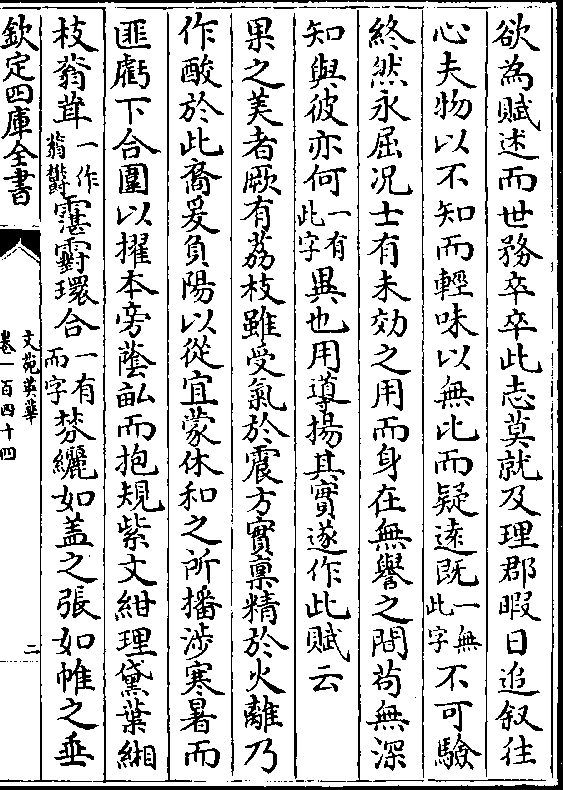 欲為賦述而世務卒卒此志莫就及理郡暇日追叙往
心夫物以不知而輕味以無比而疑遠既一無此字不可驗
終然永屈况士有未効之用而身在無譽之間苟無深
知與彼亦何一有此字異也用導揚其實遂作此賦云
果之美者厥有荔枝雖受氣於震方實稟精於火離乃
作酸於此裔爰負陽以從宜蒙休和之所播涉寒暑而
匪虧下合圍以擢本旁蔭畆而抱規紫文紺理黛葉緗
枝蓊茸一作蓊欝霮䨴環合一有而字棼纚如盖之張如帷之垂
欽定四庫全書
文苑英華
卷一百四十四
二